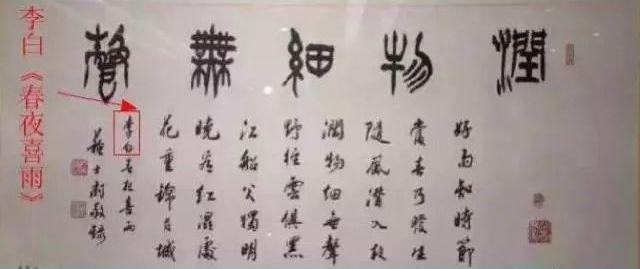 潤物細無聲
好雨知時節
當春乃發生
隨風潛入夜
潤物細無聲
野徑雲俱黑
江船火獨明
曉看紅濕處
花重錦官城
李白春夜喜雨
蘇士澍敬録
李白《春夜喜雨》